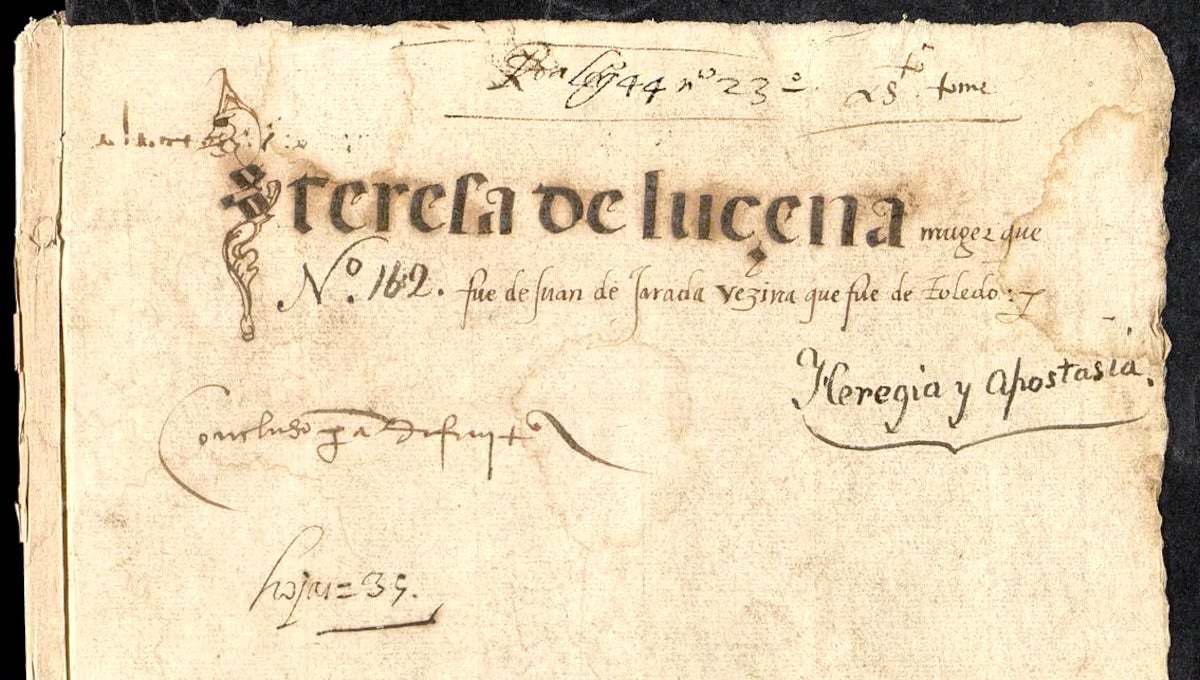 leg 44 nº 23º
tome
teresa de luçena muger que
Nº. 162. fue de Juan de Jarada vezina que fue de toledo:
Heregia y apostasia.
Concluso pa difinitª
hojas = 35.